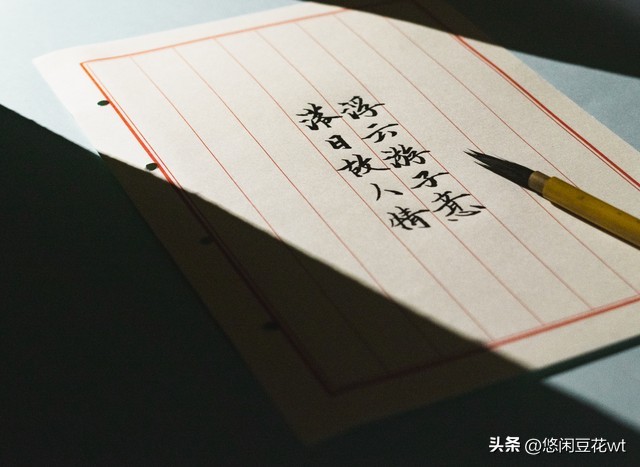 浮云游子意
落日故人情
头条 @悠闲豆花wt